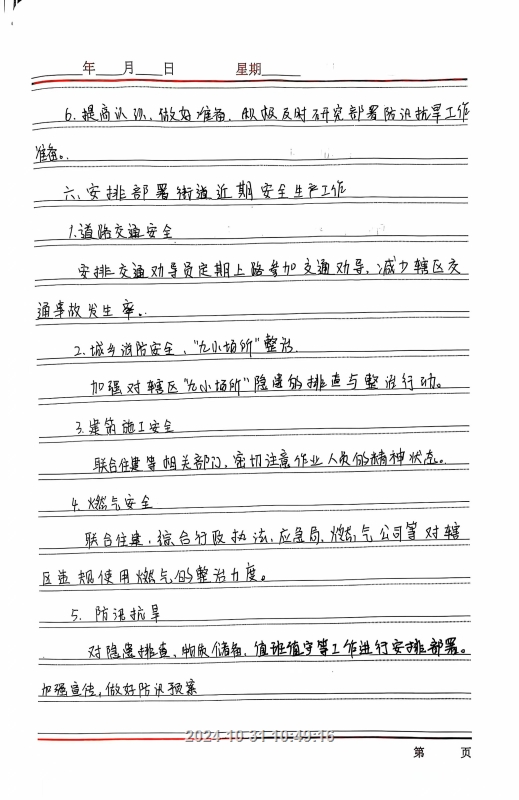 年 月 日 星期
6.提高认识、做好准备、积极及时研究部署防汛抗旱工作
准备。
六、安排部署街道近期安全生产工作
1.道路交通安全
安排交通劝导员定期上路参加交通劝导,减少辖区交
通事故发生率。
2.城乡消防安全、"九小场所"整治.
加强对辖区"九小场所"隐患的排查与整治行动。
3.建筑施工安全
联合住建等相关部门,密切注意作业人员的精神状态。
4.燃气安全
联合住建、综合行政执法、应急局、燃气公司等对辖
区违规使用燃气的整治力度。
5.防汛抗旱
对隐患排查、物质储备、值班值守等工作进行安排部署。
加强宣传,做好防汛预案
2024-10-31 10:49:16
第 页